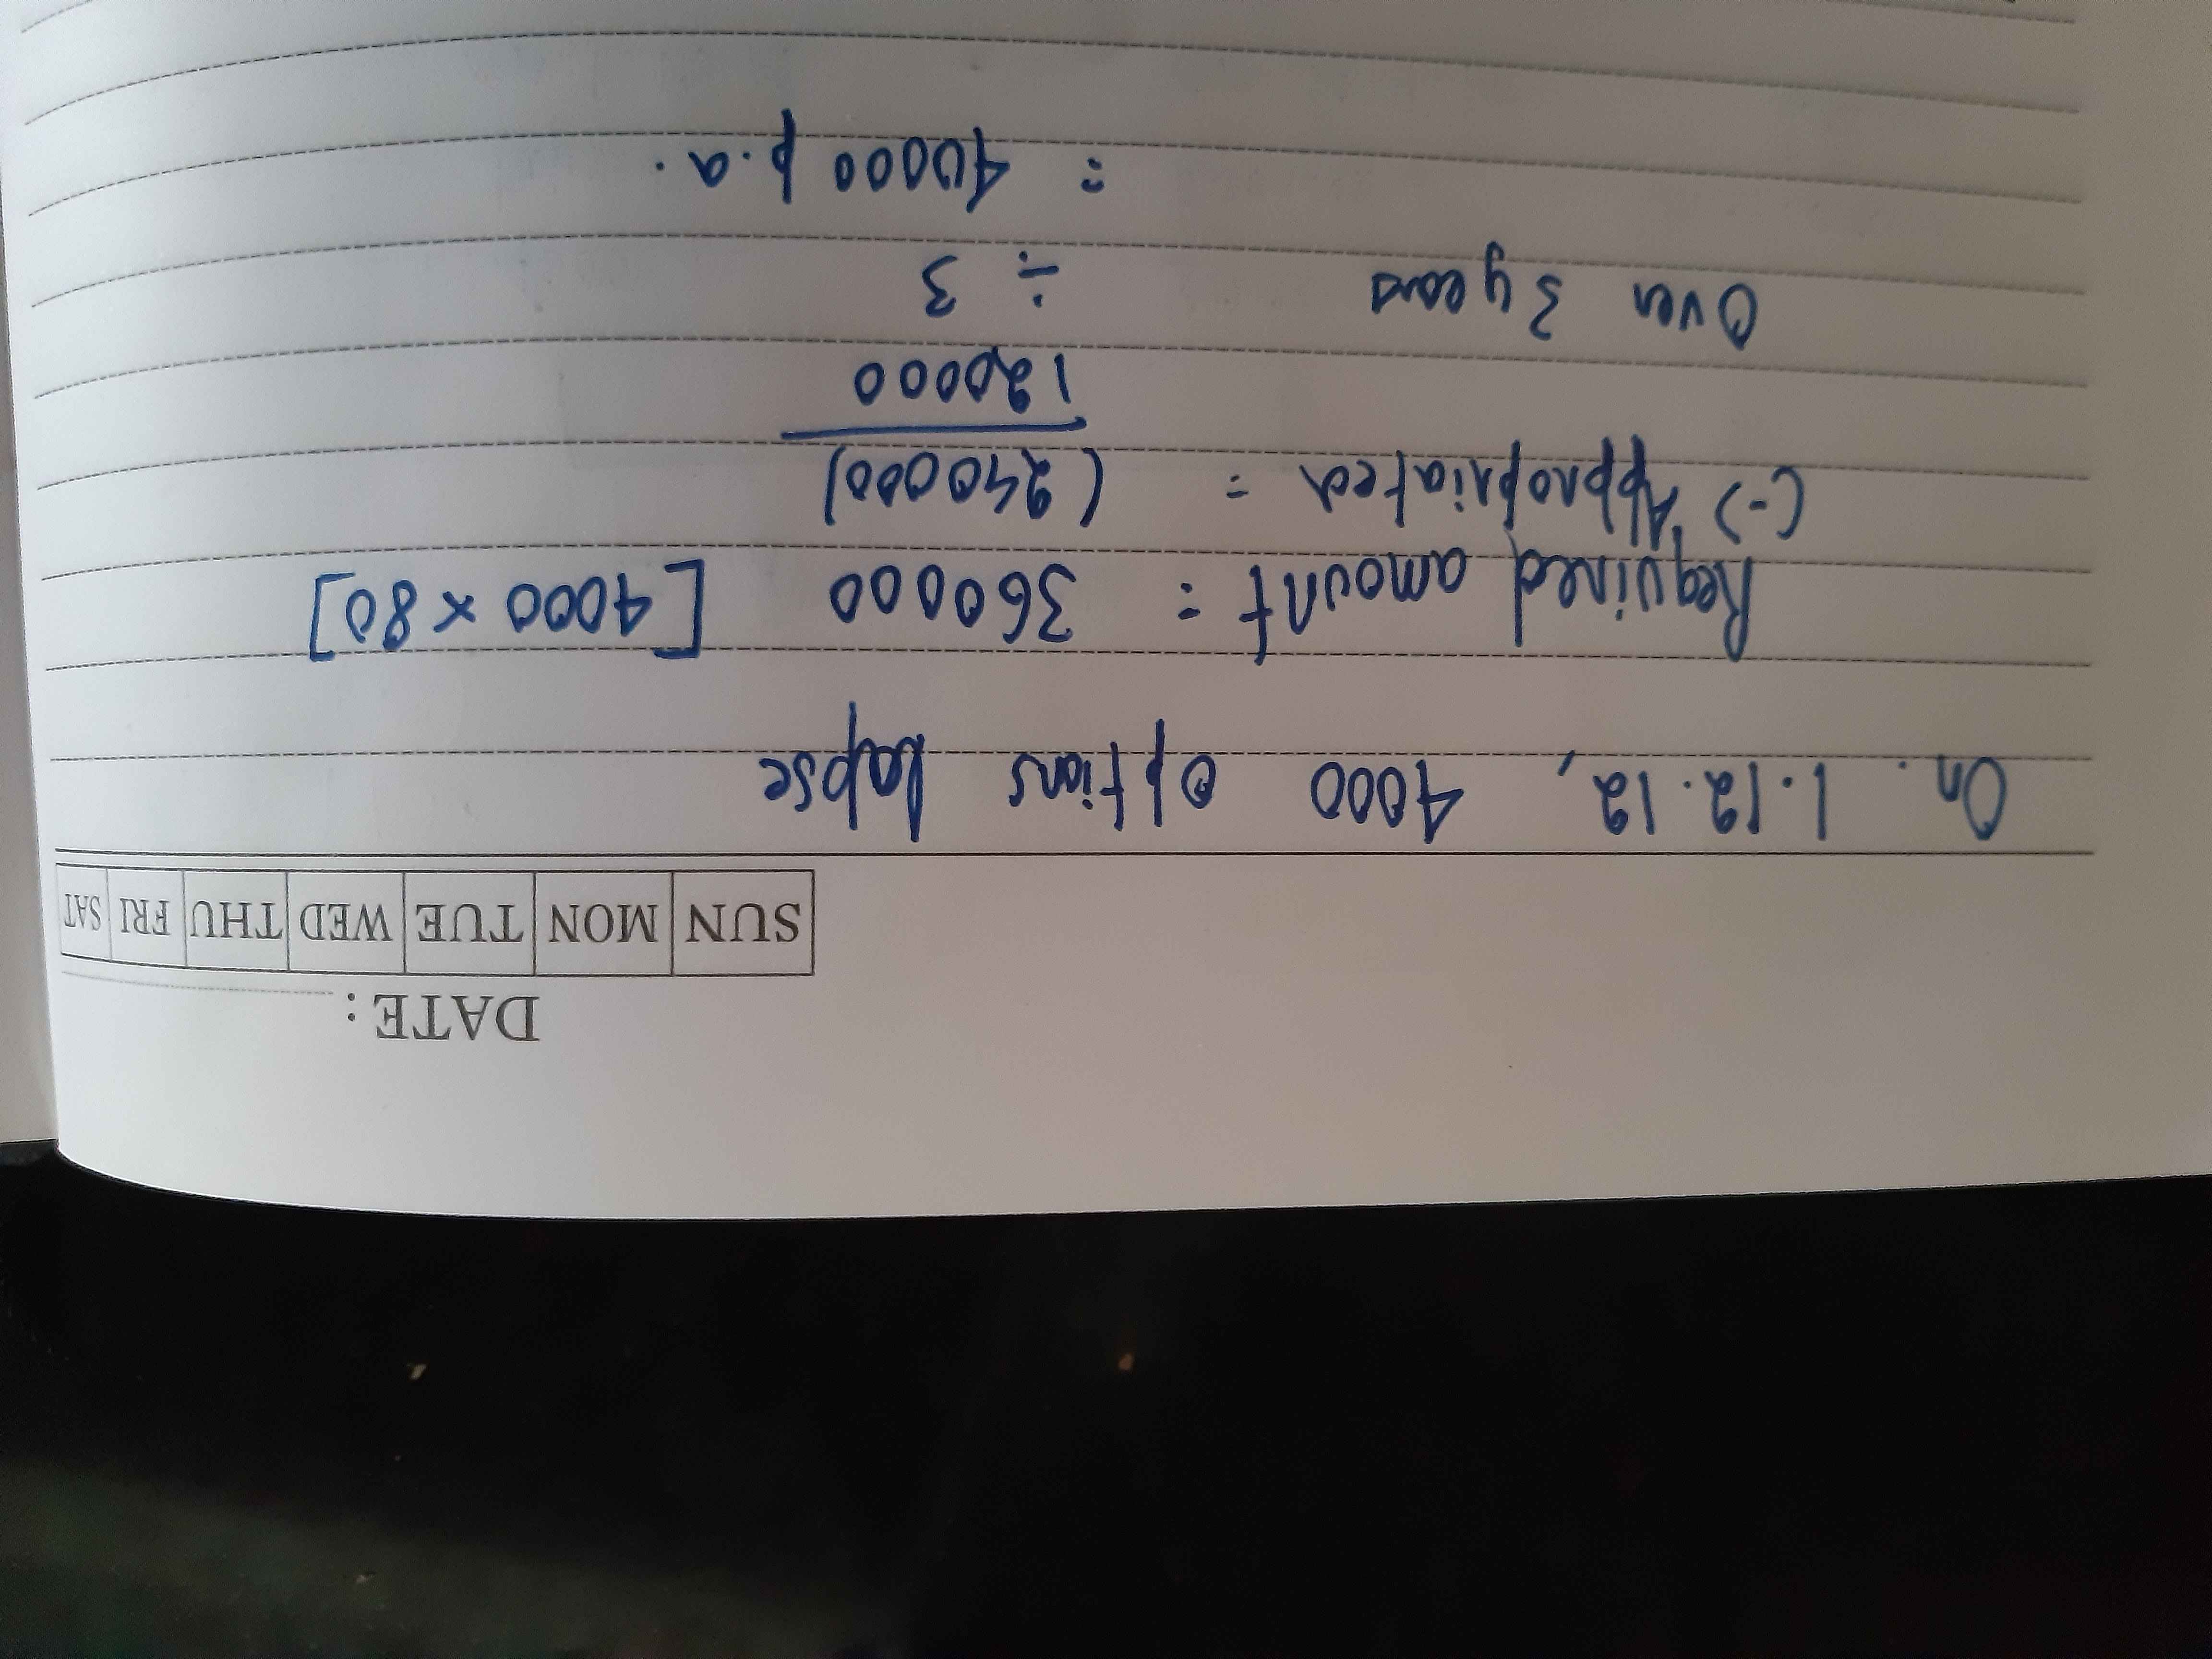 DATE:
SUN MON TUE WED THU FRI SAT
On. 1.12.12, 4000 options lapse
Required amount = 360000 [4000 × 80]
(-) Appropriated = (240000)
120000
Over 3 years ÷ 3
= 40000 p.a.